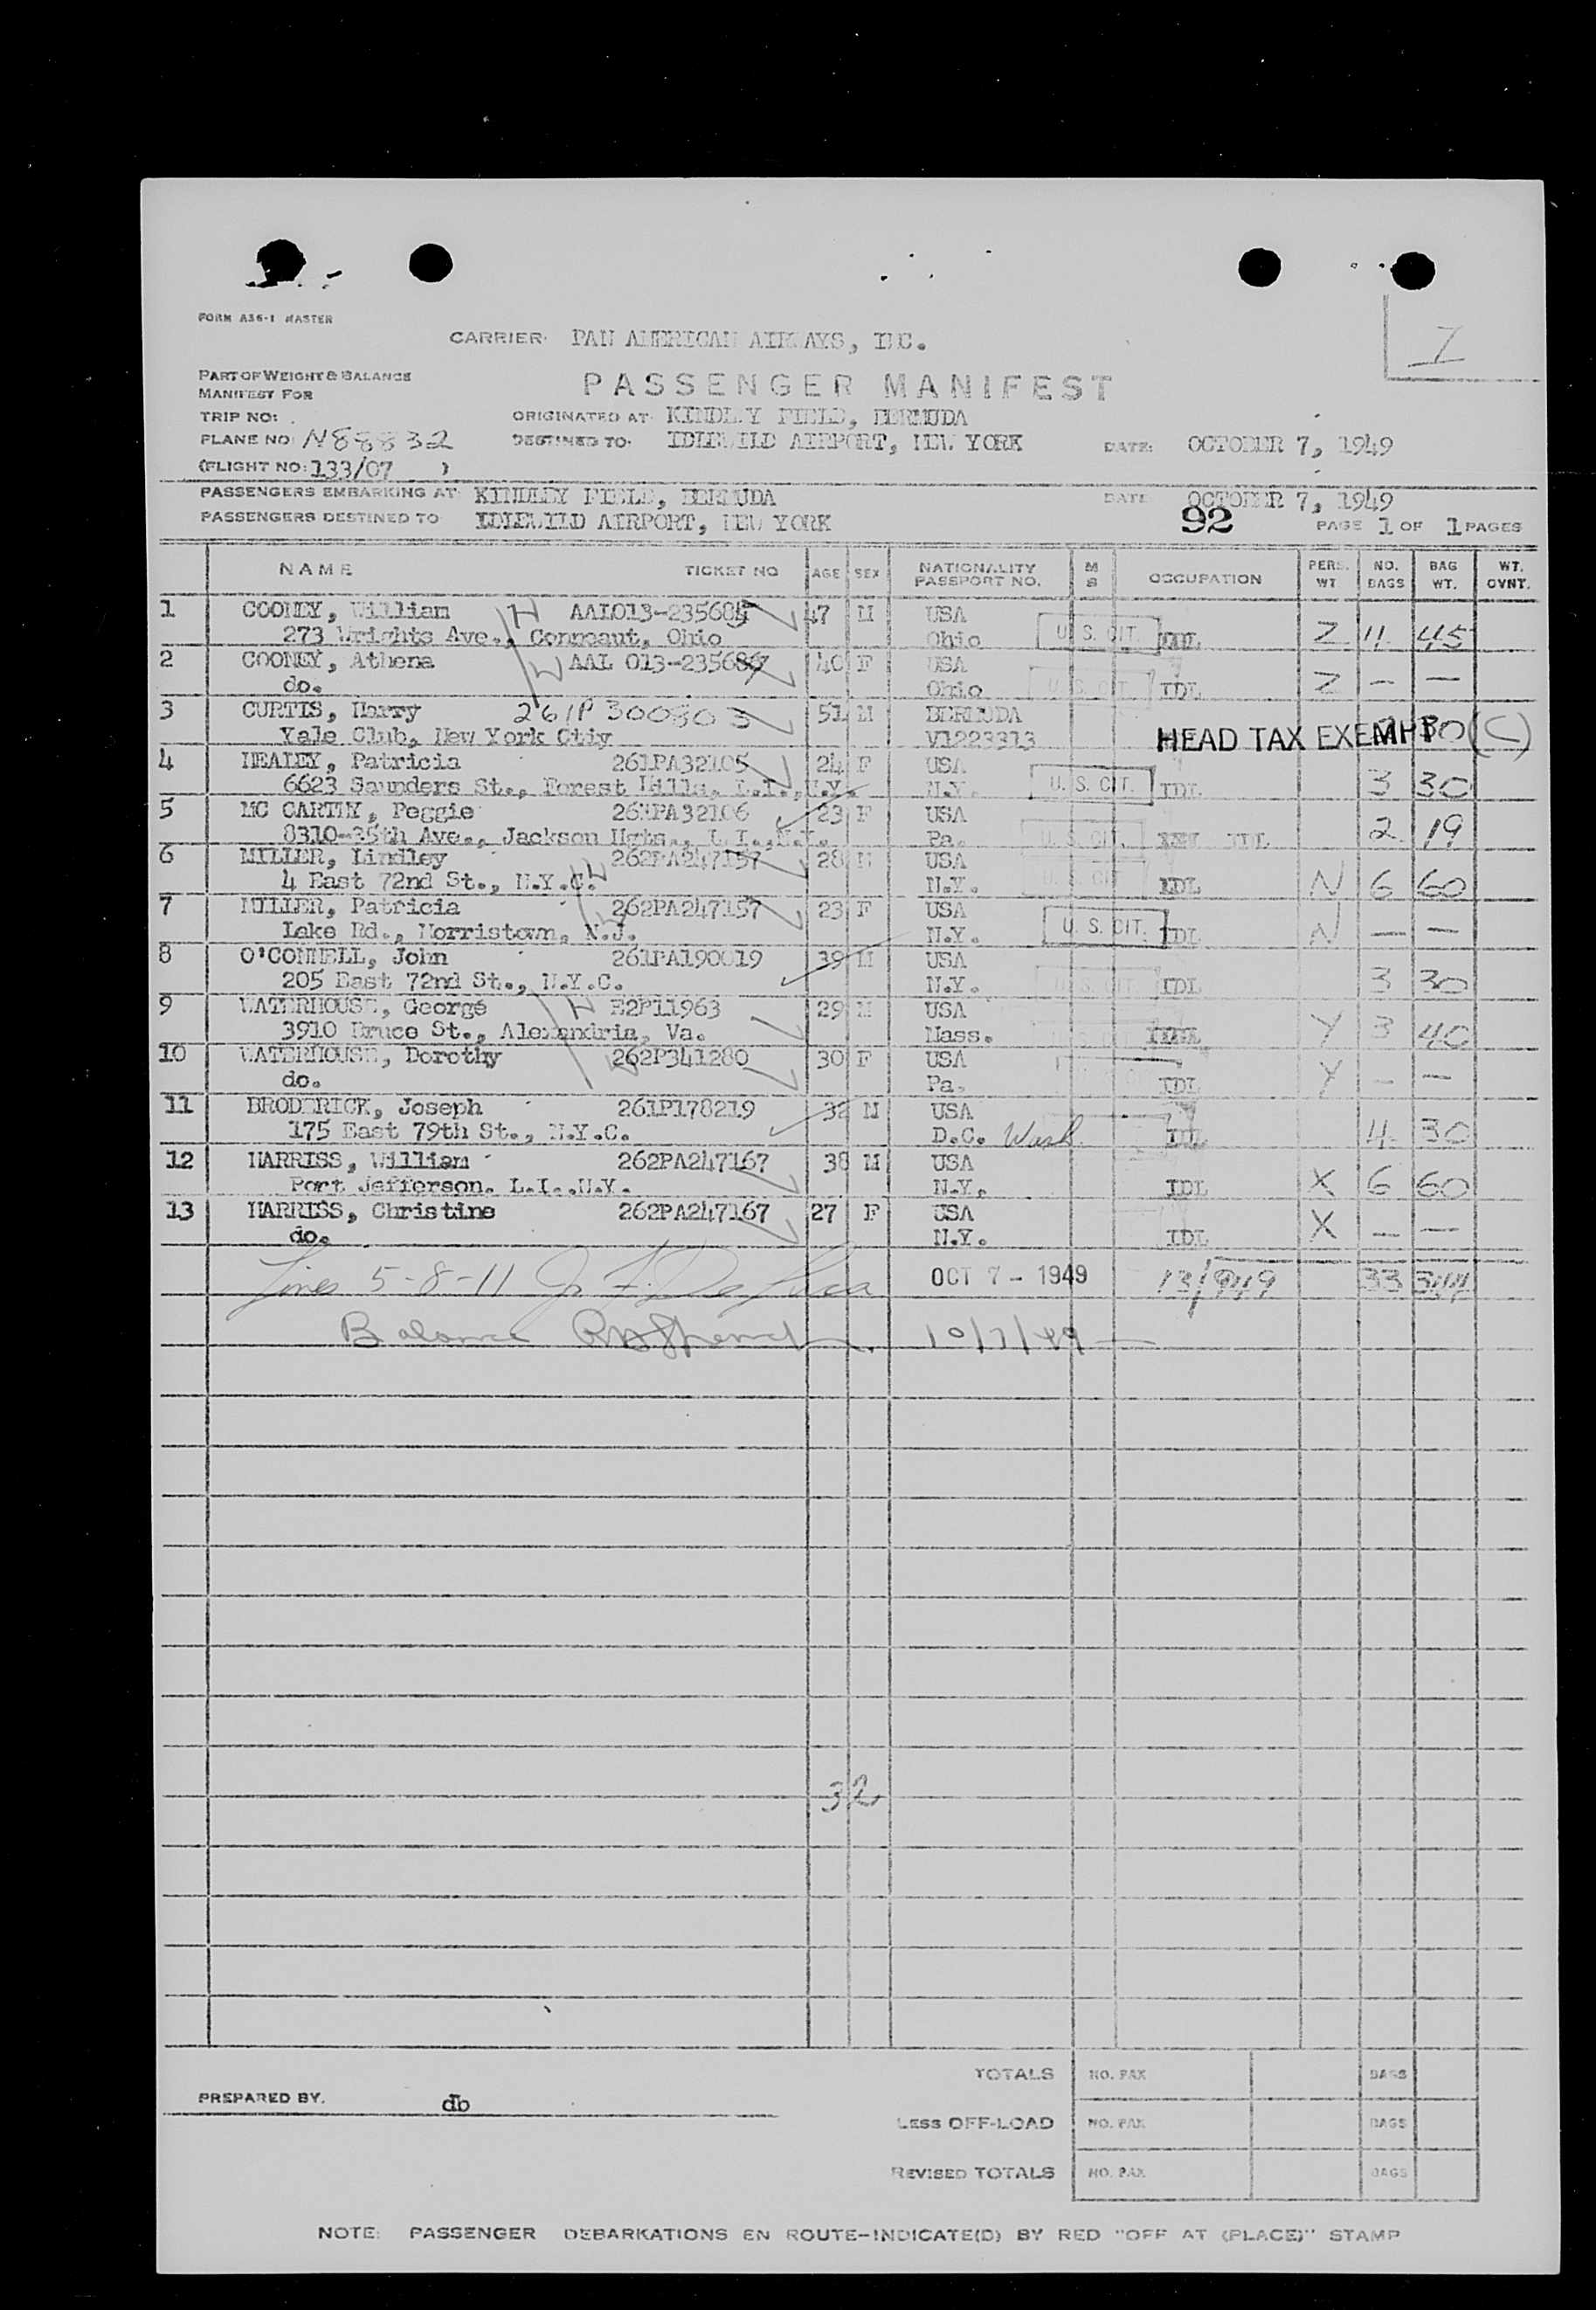 I
FORM A36-1 MASTER
CARRIER: PAN AMERICAN AIRWAYS, INC.
PART OF WEIGHT & BALANCE
MANIFEST FOR
PASSENGER MANIFEST
TRIP NO:
ORIGINATED AT: KINDLEY FIELD, BERMUDA
PLANE NO: N88832
DESTINED TO: IDLEWILD AIRPORT, NEW YORK DATE: OCTOBER 7, 1949
(FLIGHT NO: 133/07 )
PASSENGERS EMBARKING AT: KINDLEY FIELD, BERMUDA DATE OCTOBER 7, 1949
PASSENGERS DESTINED TO IDLEWILD AIRPORT, NEW YORK 92 PAGE 1 OF 1 PAGES
NAME TICKET NO AGE SEX NATIONALITY PASSPORT NO. M S OCCUPATION PERS. WT NO. BAGS BAG WT. WT. OVNT.
1 COONEY, William AAL013-235684 47 M USA
273 Wrights Ave., Conneaut, Ohio Ohio U. S. CIT. IDL Z 11 45
2 COONEY, Athena AAL 013-235684 40 F USA
do. Ohio U. S. CIT. IDL Z - -
3 CURTIS, Harry 261P300303 51 M BERMUDA
Yale Club, New York Ctiy V1223313 HEAD TAX EXEMPT 30 (C)
4 HEALEY, Patricia 261PA32105 24 F USA
6623 Saunders St., Forest Hills, L.I.,N.Y. N.Y. U. S. CIT. IDL 3 30
5 MC CARTHY, Peggie PA32106 23 F USA
8310-35th Ave., Jackson Hgts., L.I.,N.Y. Pa. U. S. CIT. IDL 2 19
6 MILLER, Lindley 262PA247157 28 M USA
4 East 72nd St., N.Y.C. N.Y. U. S. CIT IDL N 6 60
7 MILLER, Patricia 262PA247157 23 F USA
Lake Rd., Morristown, N.J. N.Y. U. S. CIT. IDL N - -
8 O'CONNELL, John 261PA190019 39 M USA
205 East 72nd St., N.Y.C. N.Y. IDL 3 30
9 WATERHOUSE, George E2P11963 29 M USA
3910 Bruce St., Alexandria, Va. Mass. Y 3 40
10 WATERHOUSE, Dorothy 262P341280 30 F USA
do. Pa. IDL Y - -
11 BRODERICK, Joseph 261P178219 32 M USA
175 East 79th St., N.Y.C. D.C. Wash IDL 4 30
12 HARRISS, William 262PA247167 38 M USA
Port Jefferson. L.I.,N.Y. N.Y. IDL X 6 60
13 HARRISS, Christine 262PA247167 27 F USA
do. N.Y. IDL X - -
Lines 5-8-11 OCT 7 - 1949 13/949 33 344
Balance 10/7/49
32
TOTALS NO. PAX BAGS
PREPARED BY. db
LESS OFF-LOAD NO. PAX BAGS
REVISED TOTALS NO. PAX BAGS
NOTE: PASSENGER DEBARKATIONS EN ROUTE-INDICATE(D) BY RED "OFF AT (PLACE)" STAMP